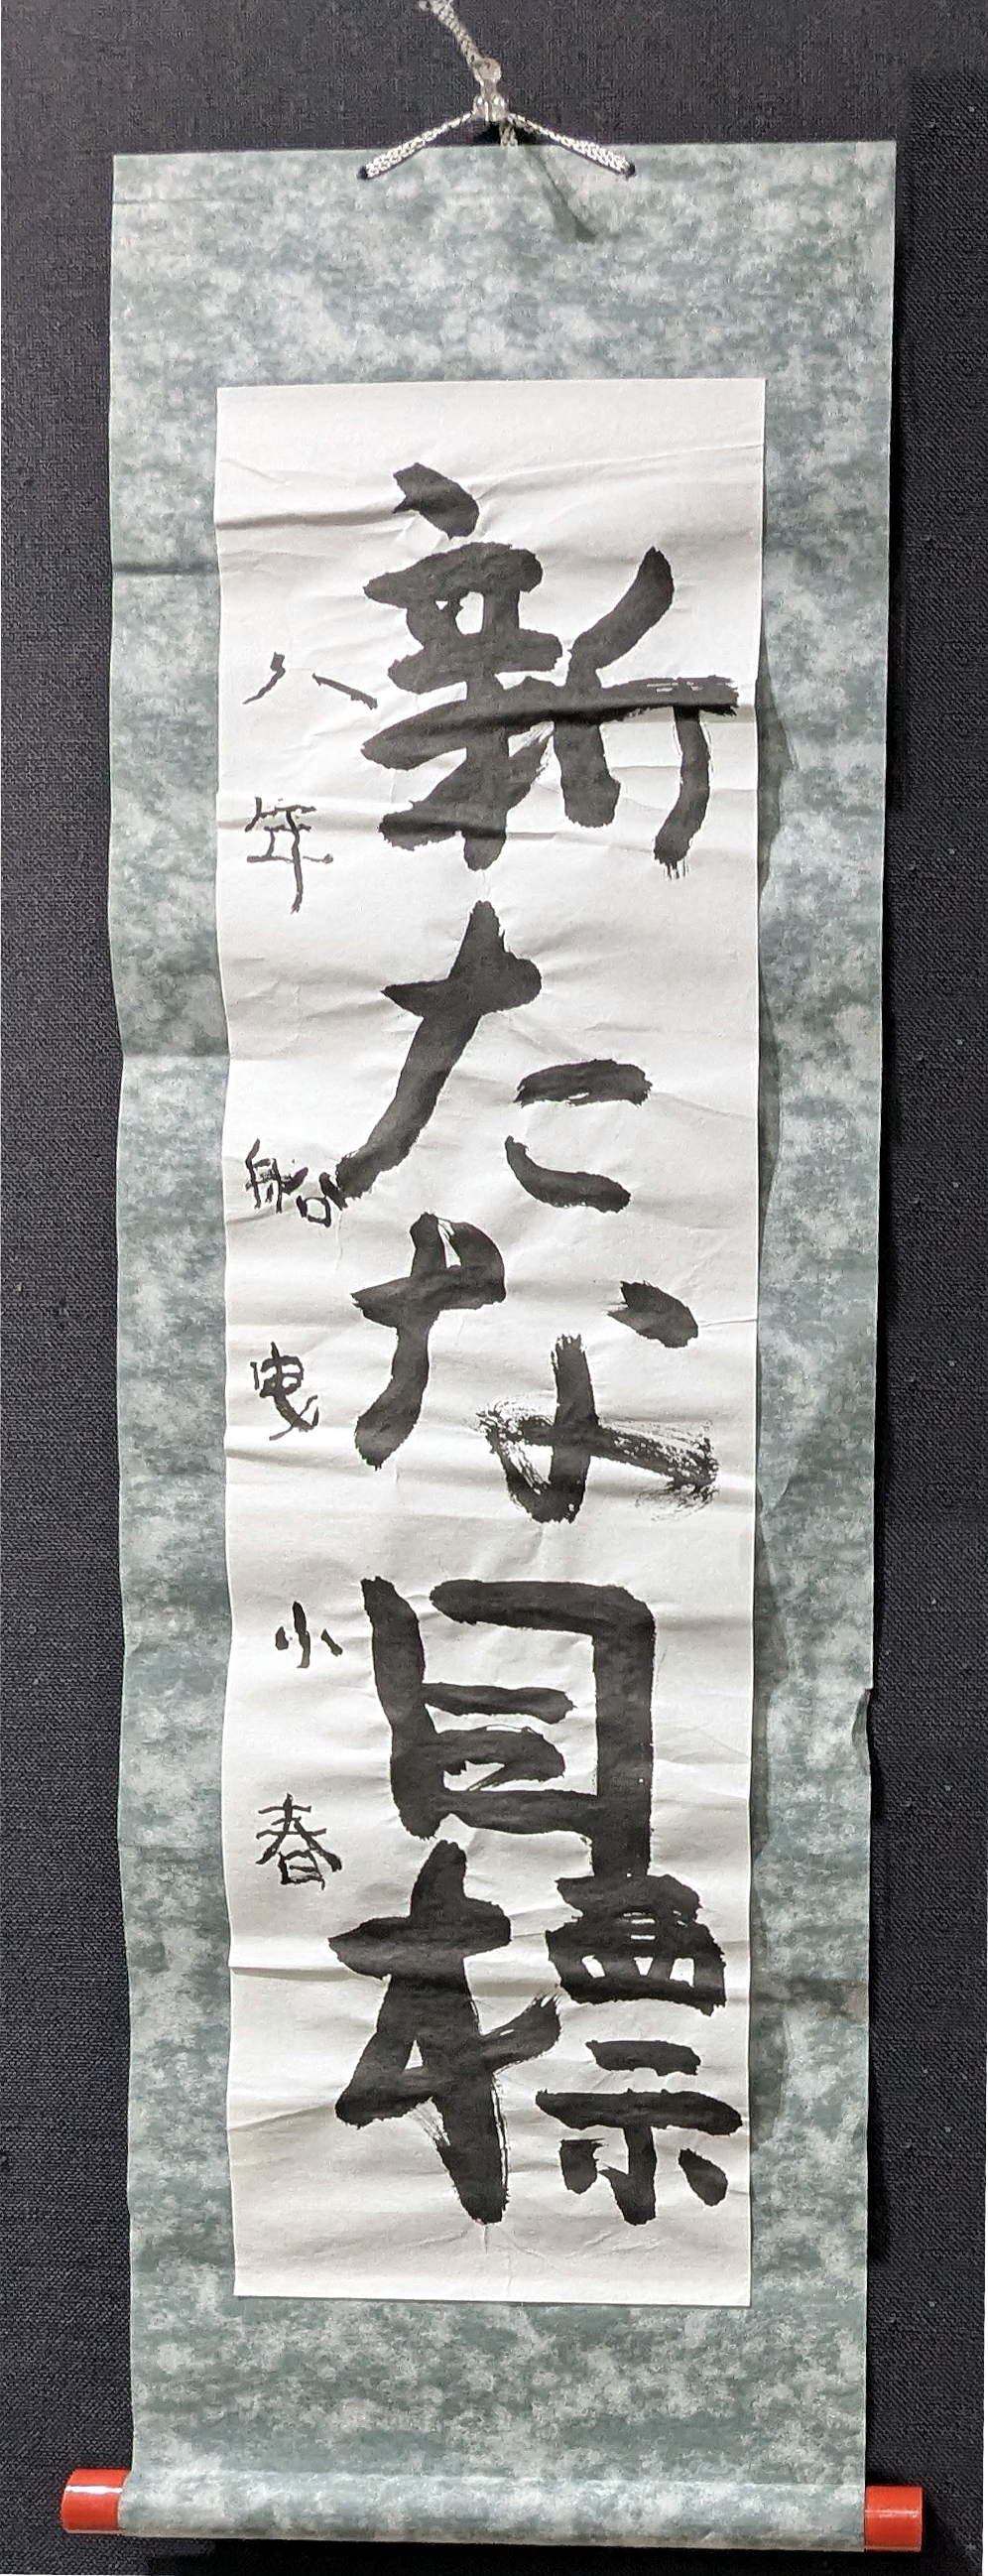 新たな目標
八年 船曳小春